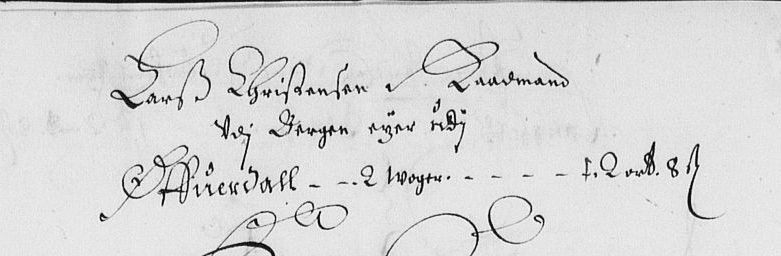 Larsß Christensen /. Raadmand
Vdj Bergen eyer udj
Offuerdall - - . 2 woger. - - - - - /. 2 ort. 8 ß